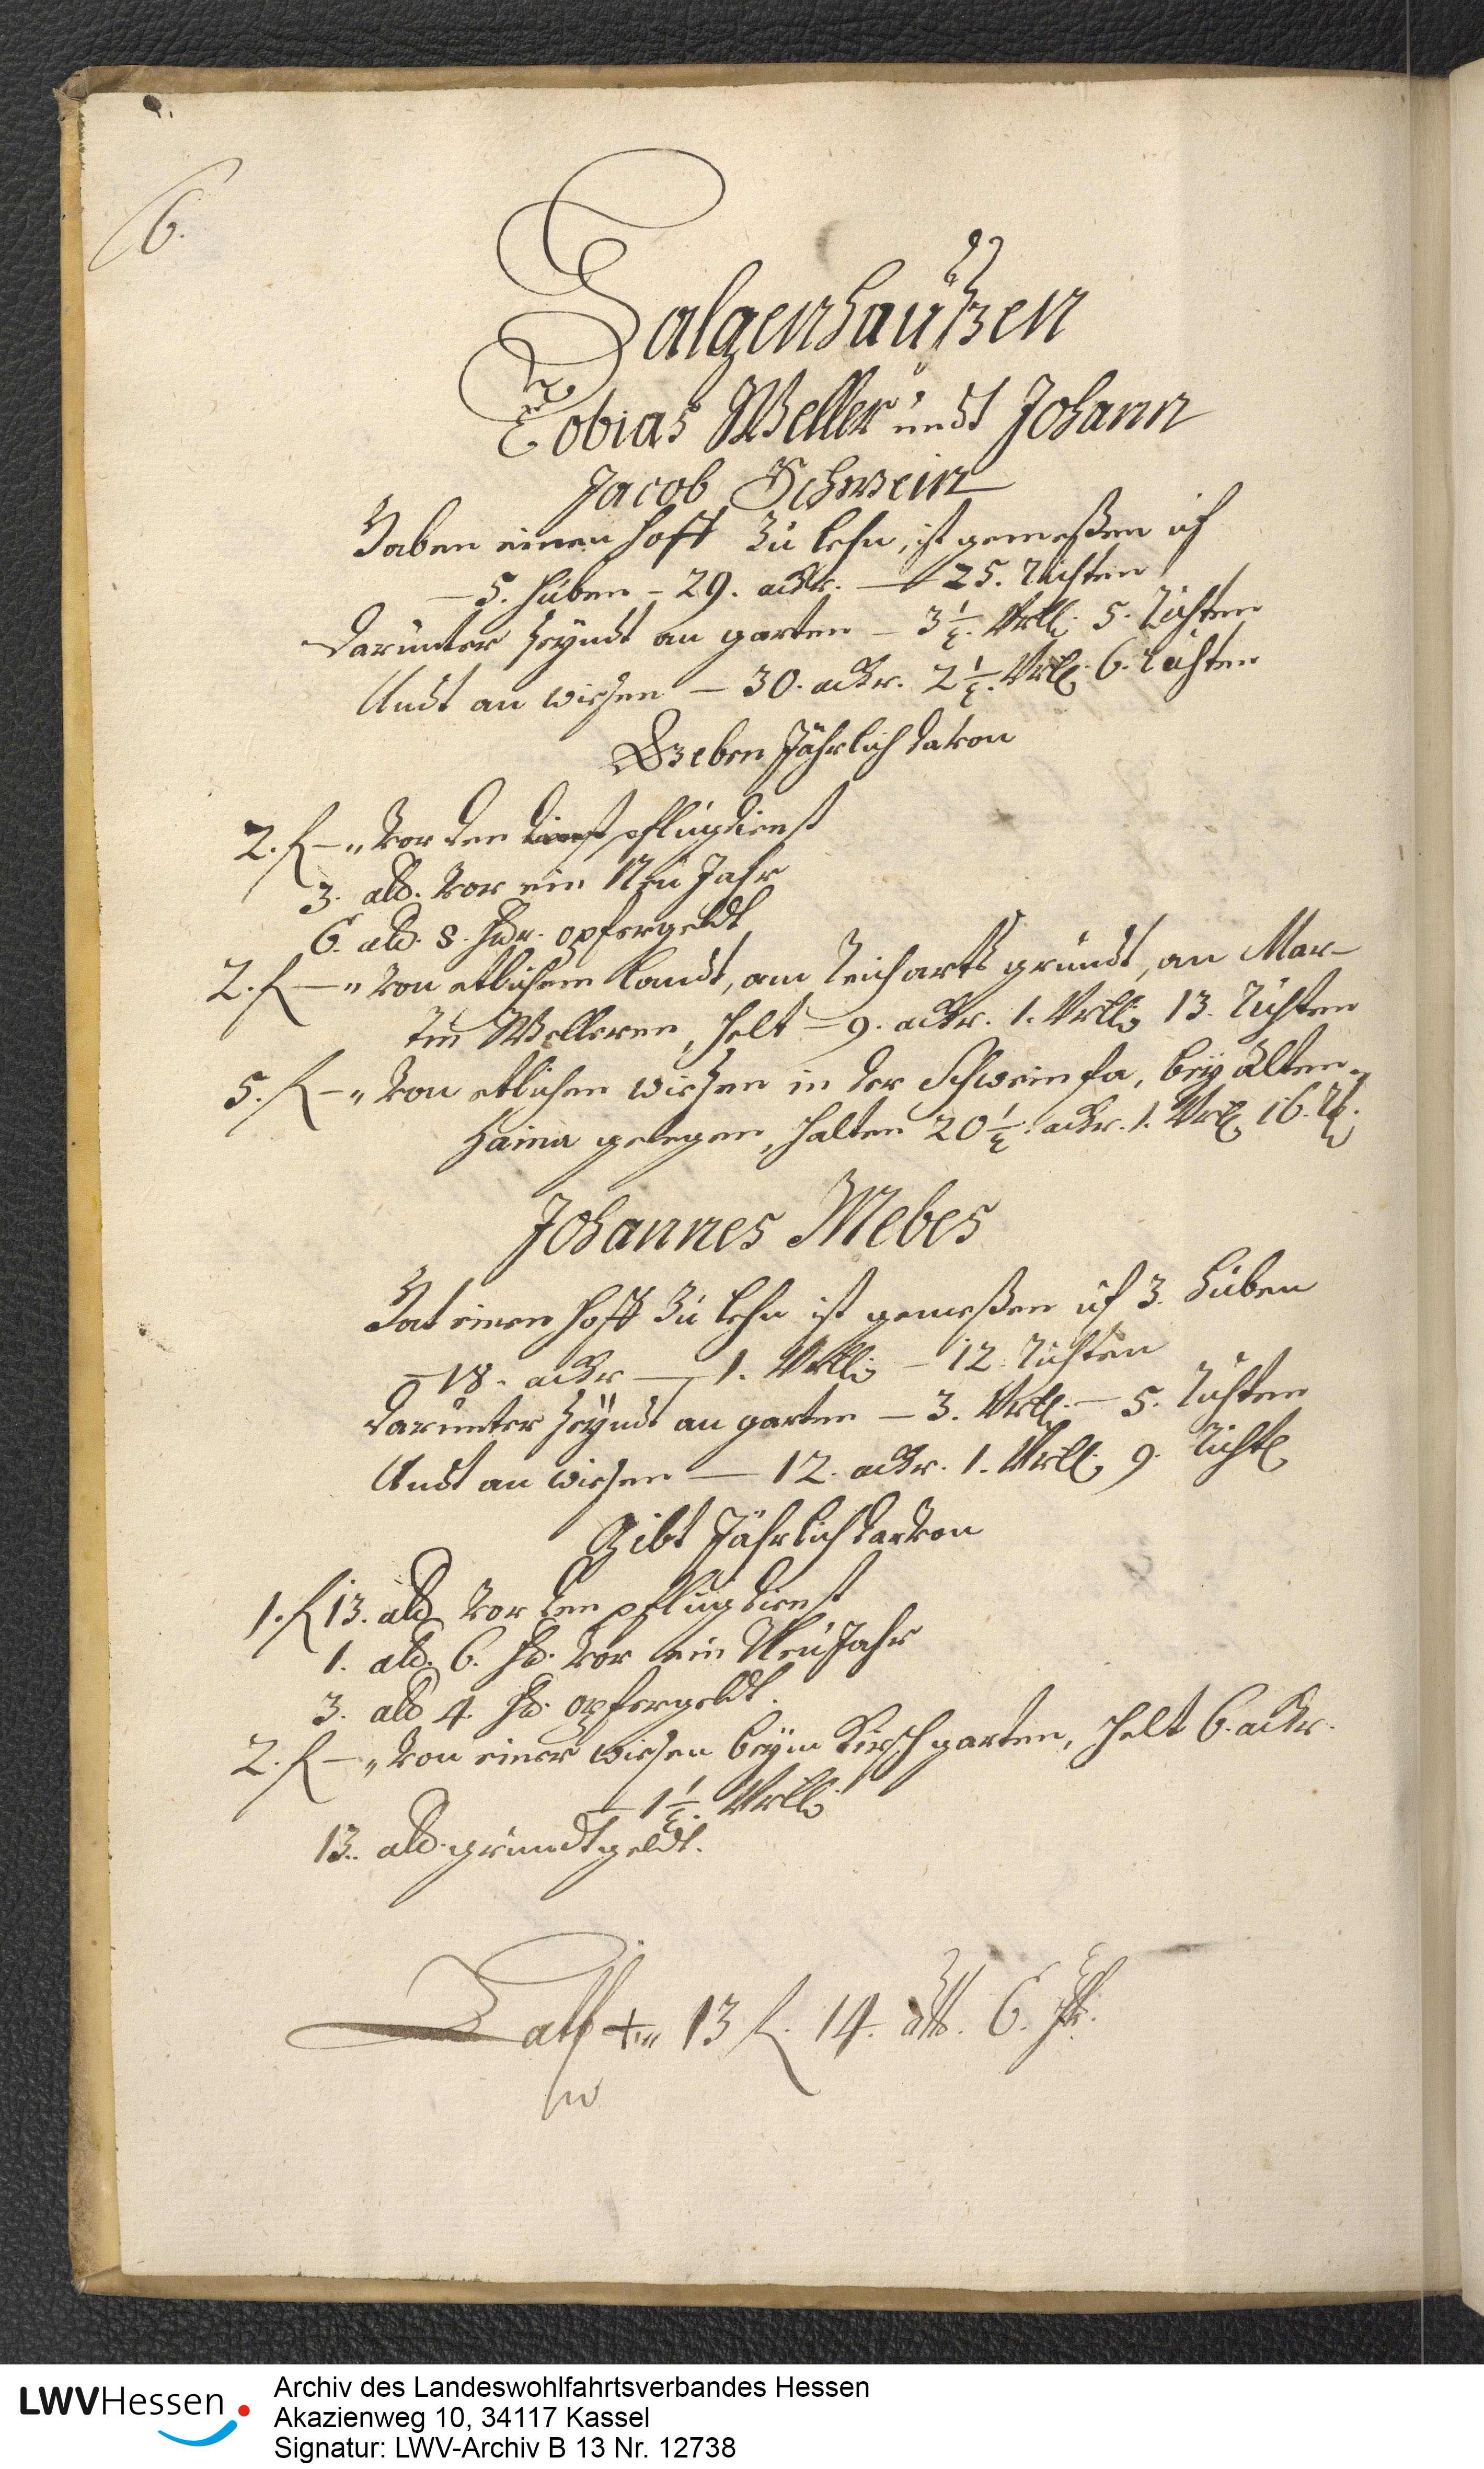 6.
Halgenhaußen
Tobias Weller undt Johann
Jacob Schwein
Haben einen hoff zu lehn, ist gemeßen uf
— 5. huben — 29. ackr. — 25. Ruthen
Darunter seyndt an garten — 3½. Vrtll. 5. Ruthen
Undt an wiesen — 30. ackr. 2½. Vrtll. 6. Ruthen
Geben Jährlich davon
2. fl — „ vor den pflugdienst
3. alb. vor ein Neu Jahr
6. alb. 8. hlr. opfergeldt
2. fl — „ von etlichem landt, am Reicharts grundt, an Mar-
tin Welleren, helt — 9. ackr. 1. Vrtll 13. Ruthen
5. fl — „ von etlichen wiesen in der Schweinfa, bey Alten-
haina gelegen, halten 20½. ackr. 1. Vrtll. 16. R.
Johannes Mebes
Hat einen hoff zu lehn ist gemeßen uf 3. huben
— 18. ackr — 1. Vrtll — 12. Ruthen
Darunter seyndt an garten — 3. Vrtll. — 5. Ruthen
Undt an wiesen — 12. ackr. 1. Vrtll. 9. Ruth
Gibt Jährlich darvon
1. fl 13. alb vor den pflugdienst
1. alb. 6. hlr. vor ein Neu Jahr
3. alb 4. hlr. opfergeldt.
2. fl — „ von einer wiesen beym Kirschgarten, helt 6. ackr.
— 1½. Vrtll
13. alb. grundtgeldt.
13 fl. 14. alb. 6. hlr.
LWVHessen
Archiv des Landeswohlfahrtsverbandes Hessen
Akazienweg 10, 34117 Kassel
Signatur: LWV-Archiv B 13 Nr. 12738